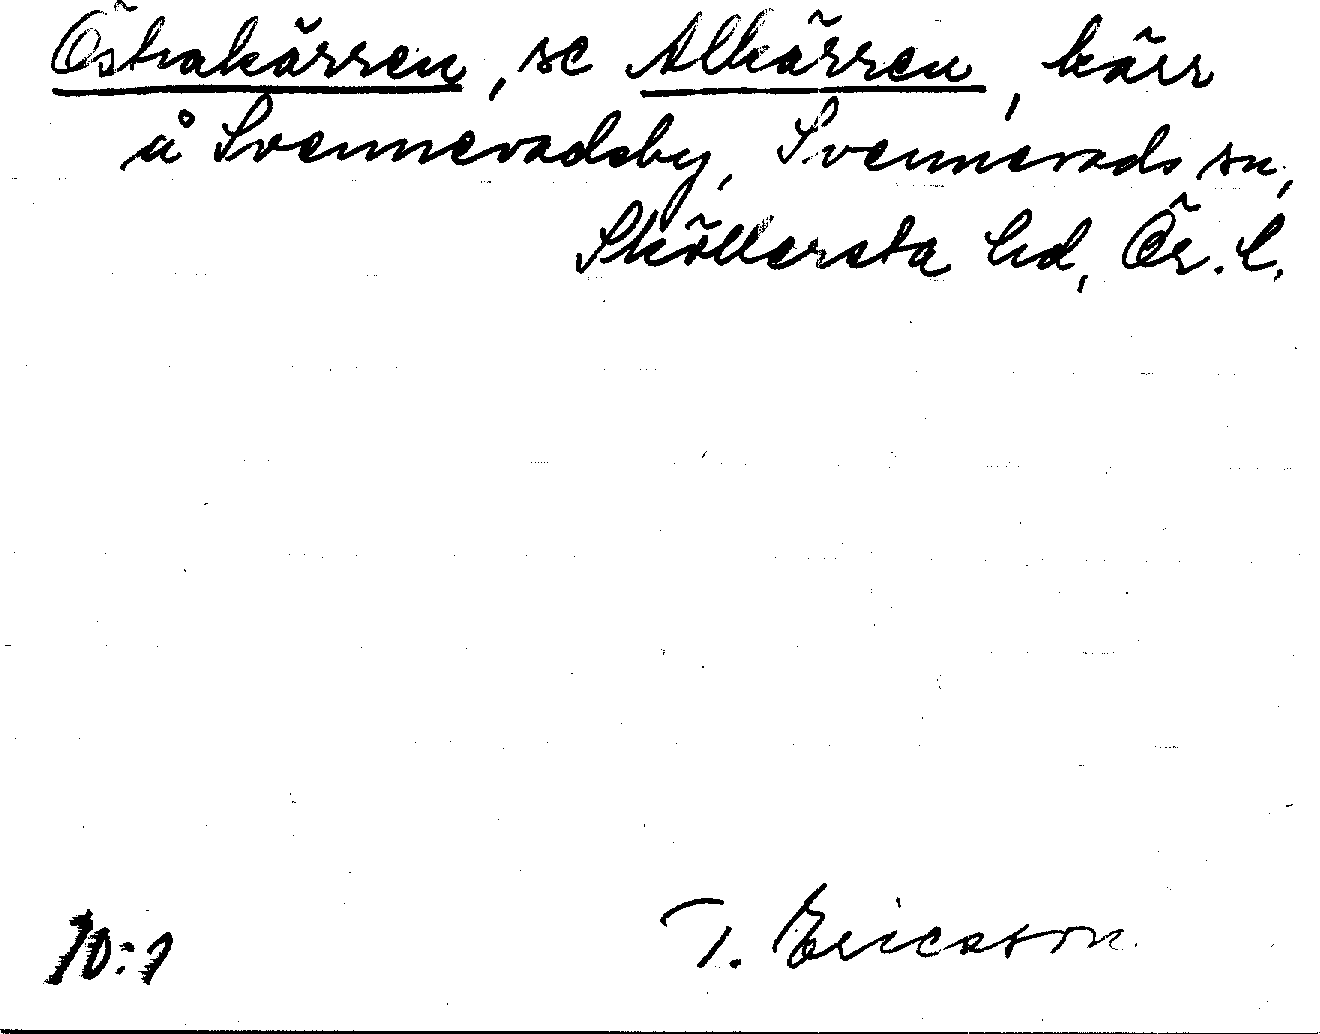 Östrakärren, se Alkärren, kärr
å Svennevadsby, Svennevads sn,
Sköllersta hd, Ör. l.
10:1
T. Ericsson